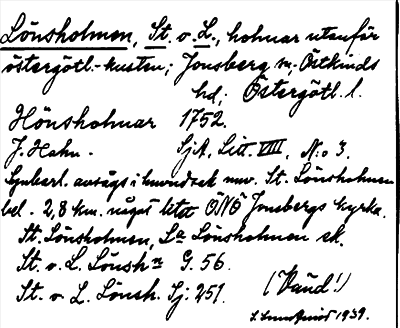 Lönsholmen, St. o. L., holmar utanför
östergötl.-kusten; Jonsberg sn; Östkinds
hd; Östergötl. l.
Hönsholmar 1752.
J. Hahn. SjA, Litt. VIII, N:o 3.
avsågs i huvudsak nuv. St. Lönsholmen
bel. 2,8 km. något ÖNÖ Jonsbergs kyrka.
St. Lönsholmen, La Lönsholmen sk.
St. o. L. Lönsh. G. 56.
St. o. L. Lönsh. Sj: 251. (Vänd!)
1939.